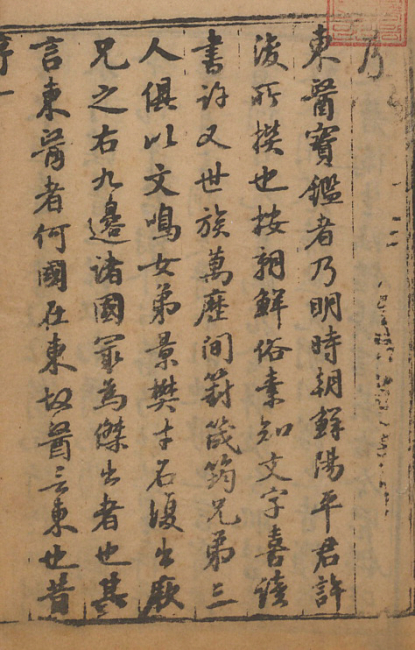 乃
東醫寶鑑者乃明時朝鮮陽平君許
浚所撰也按朝鮮俗素知文字喜讀
書許又世族萬歷間篈筬筠兄弟三
人俱以文鳴女弟景樊才名復出厥
兄之右九邊諸國冣為傑出者也其
言東醫者何國在東故醫言東也昔
序一